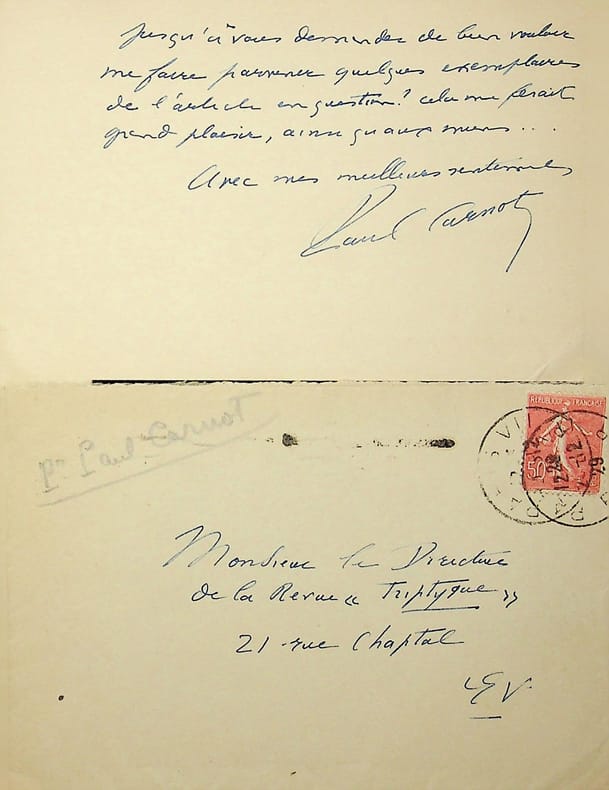 Jusqu'à vous demander de bien vouloir
me faire parvenir quelques exemplaires
de l'article en question? cela me ferait
grand plaisir, ainsi qu'aux miens...
Avec mes meilleurs sentiments
Paul Carnot
Pr Paul Carnot
REPUBLIQUE FRANÇAISE
50
Monsieur le Directeur
de la Revue « Triptyque »
21 rue Chaptal
EV